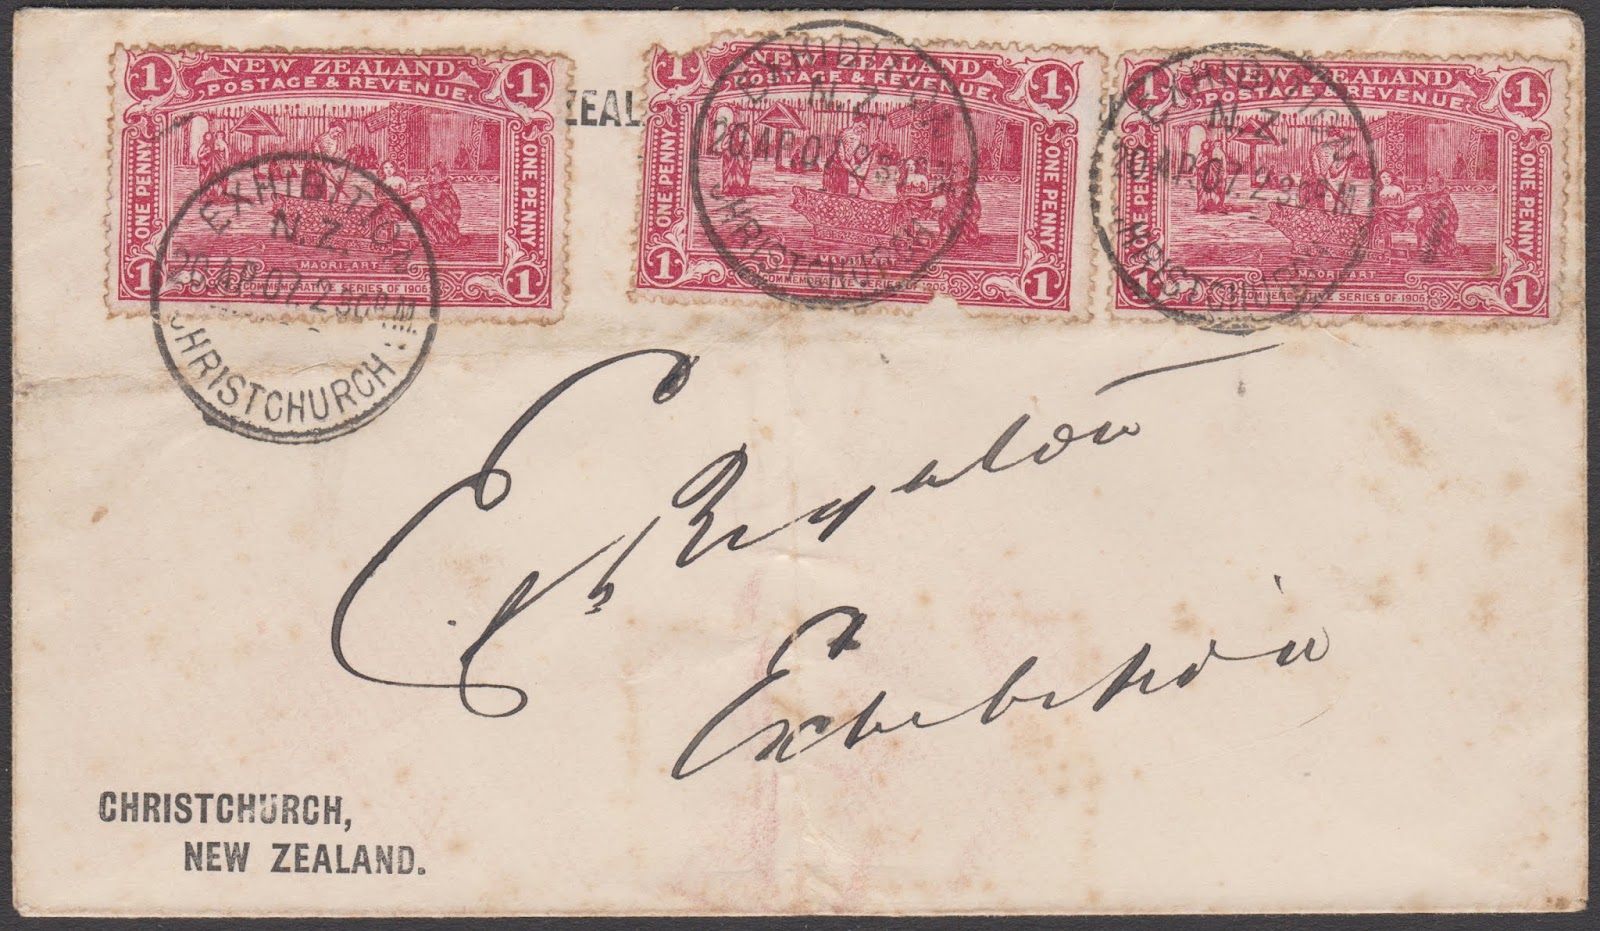 1 NEW ZEALAND 1
POSTAGE & REVENUE
ONE PENNY ONE PENNY
MAORI ART
1 COMMEMORATIVE SERIES OF 1906 1
EXHIBITION
N.Z.
20 AP.07. 2 30 P.M.
CHRISTCHURCH
ZEAL
1 NEW ZEALAND 1
POSTAGE & REVENUE
ONE PENNY ONE PENNY
1 COMMEMORATIVE SERIES OF 1906 1
EXHIBITION
N.Z.
20 AP.07. 2 30 P.M.
CHRISTCHURCH
1 NEW ZEALAND 1
POSTAGE & REVENUE
ONE PENNY ONE PENNY
MAORI ART
1 COMMEMORATIVE SERIES OF 1906 1
EXHIBITION
N.Z.
20 AP.07. 2 30 P.M.
CHRISTCHURCH
Exhibition
CHRISTCHURCH,
NEW ZEALAND.